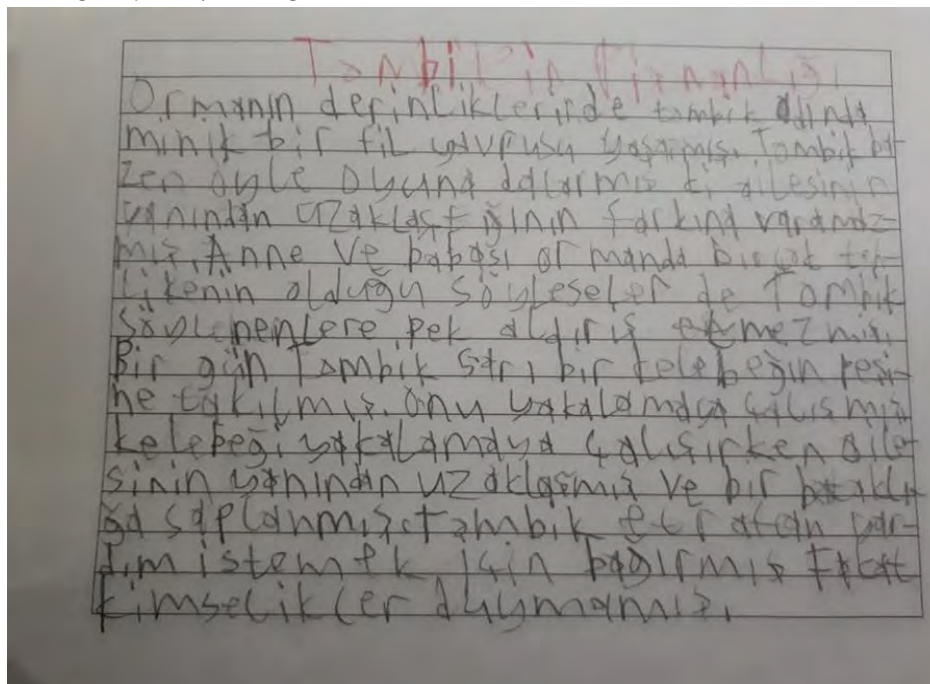 Tombik'in Pişmanlığı
Ormanın derinliklerinde tombik adında
minik bir fil yavrusu yaşarmış. Tombik ba-
zen öyle oyuna dalarmış ki ailesinin
yanından uzaklaştığının farkına varamaz-
mış. Anne ve babası ormanda birçok teh-
likenin olduğu söyleseler de Tombik
söylenenlere pek aldırış etmezmiş.
Bir gün Tombik sarı bir kelebeğin peşi-
ne takılmış. Onu yakalamaya çalışmış
kelebeği yakalamaya çalışırken aile-
sinin yanından uzaklaşmış ve bir bataklı-
ğa saplanmış. Tombik etraftan yar-
dım istemek için bağırmış Fakat
kimselikler duymamış.